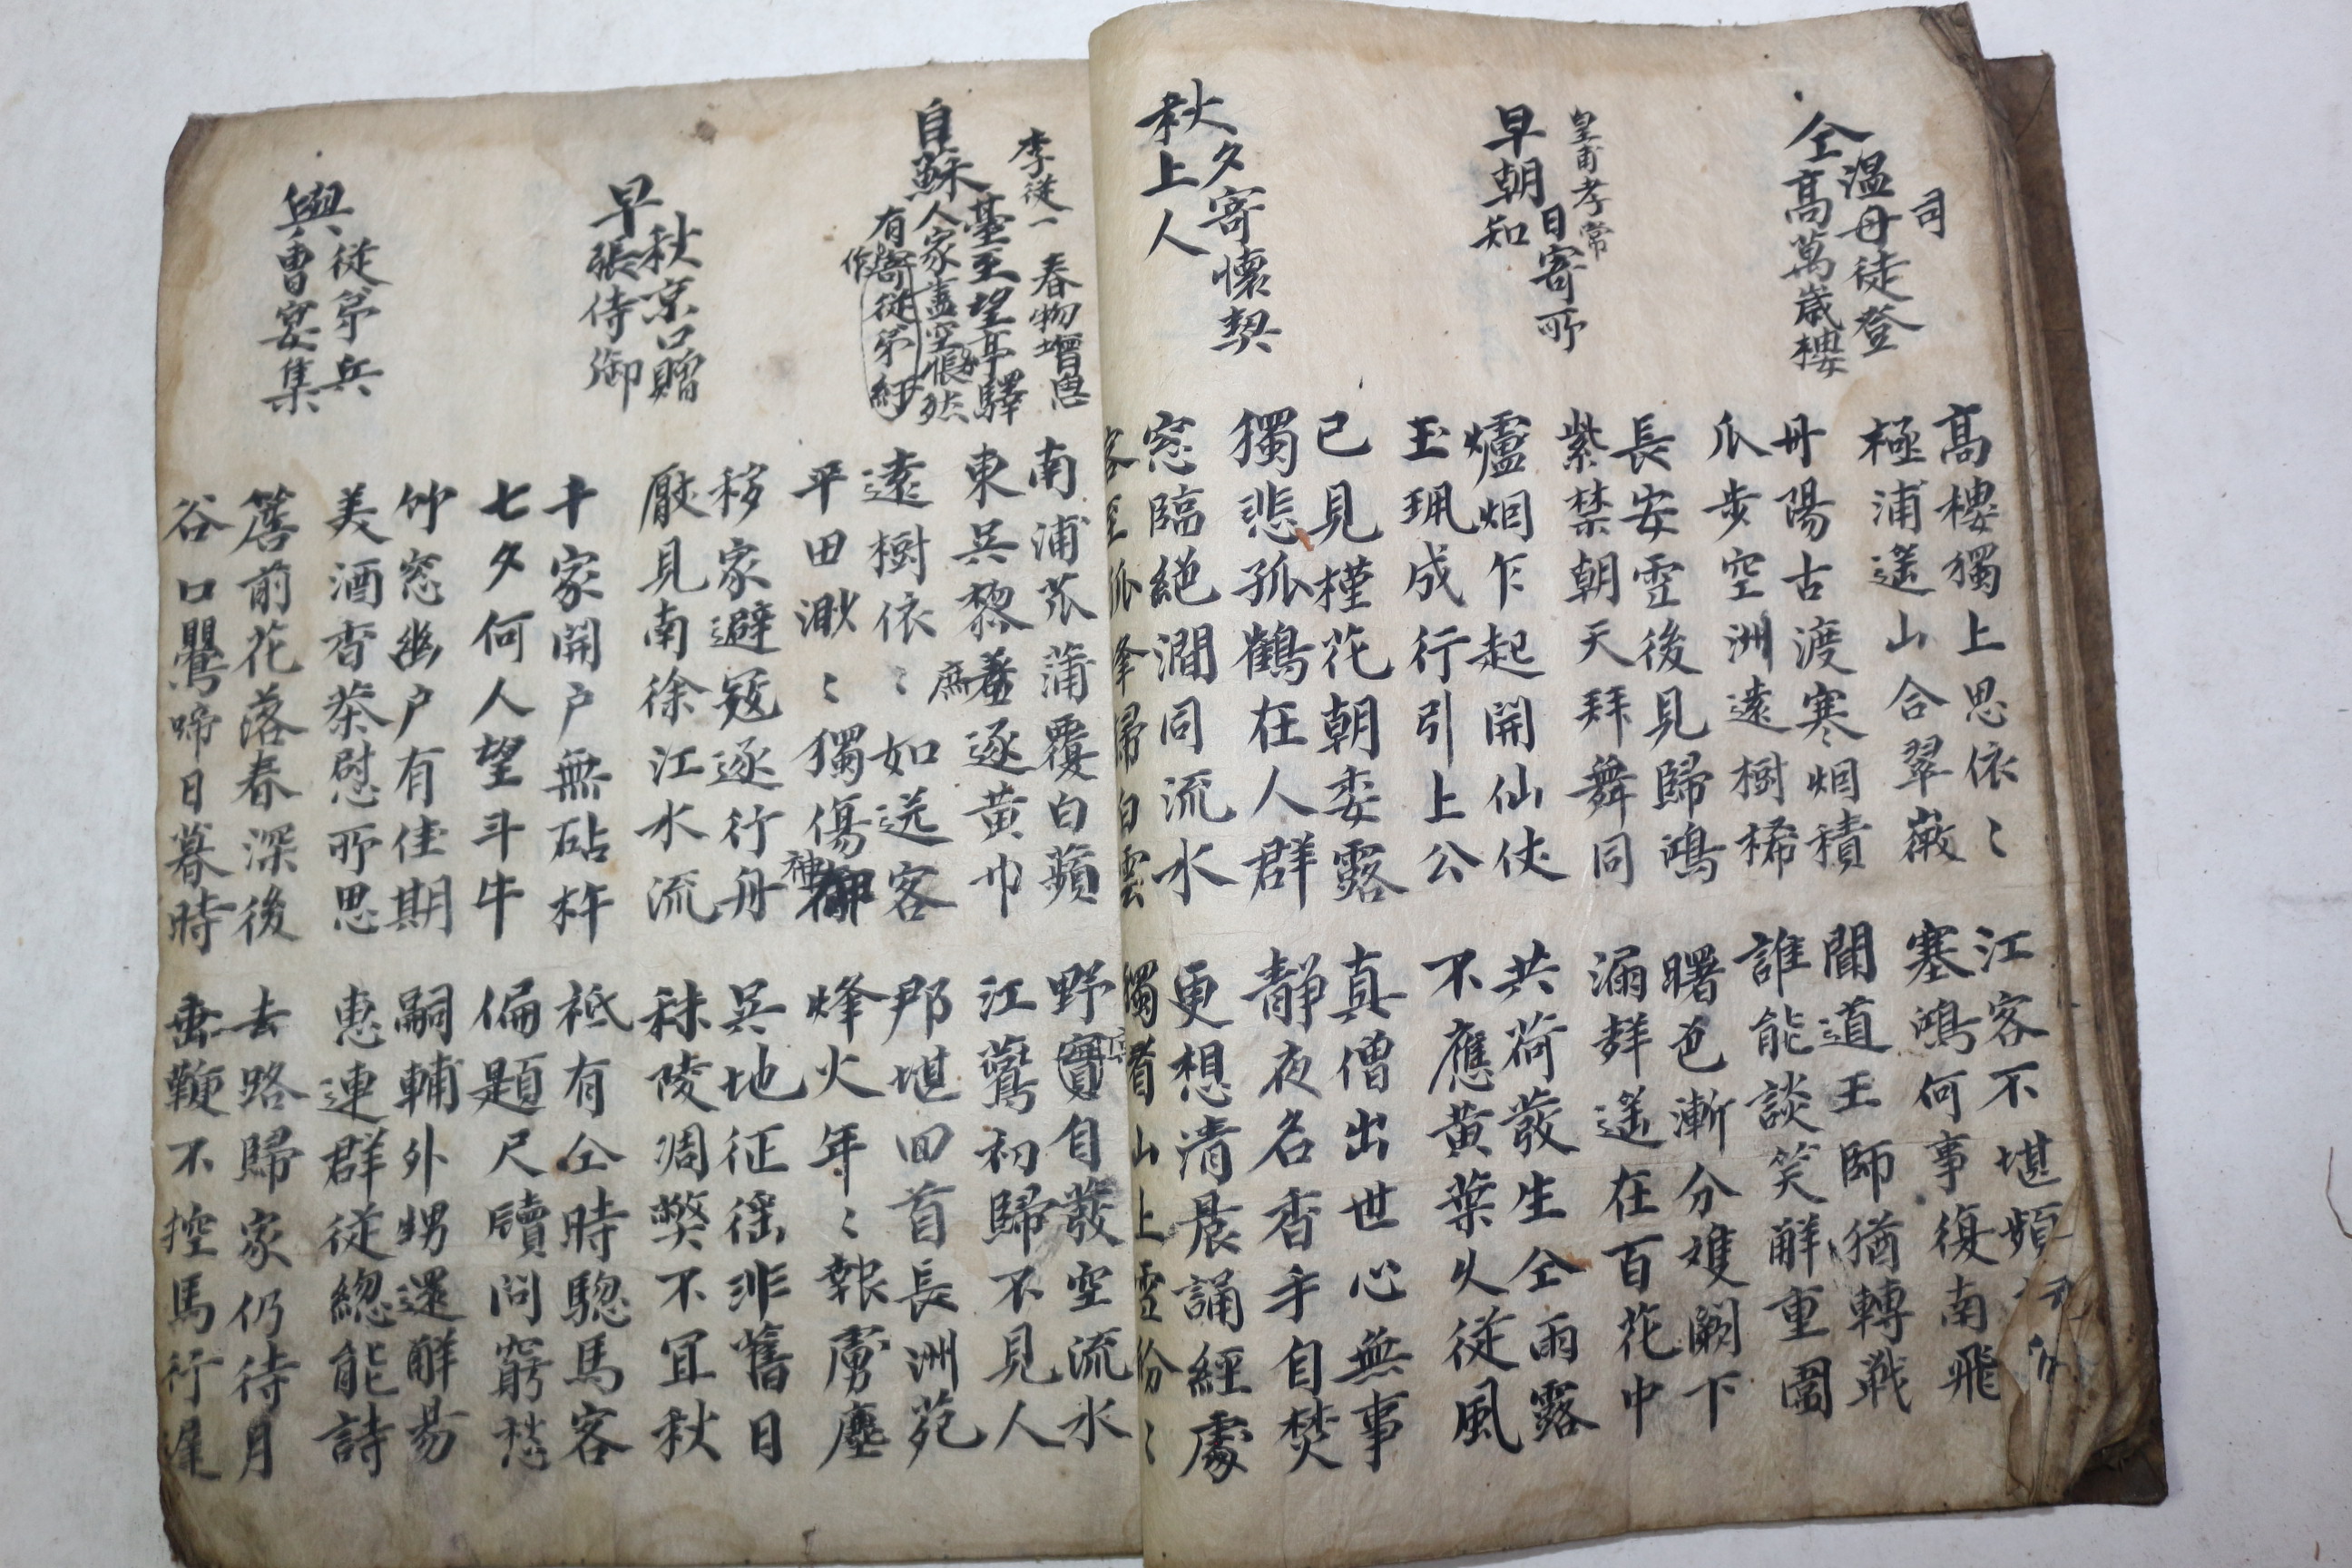 司
仝溫丹徒登
高萬歲樓
高樓獨上思依〻 江客不堪頻
極浦遙山合翠薇 塞鴻何事復南飛
丹陽古渡寒烟積 聞道王師猶轉戰
瓜步空洲遠樹稀 誰能談笑解重圍
皇甫孝常
早朝日寄所
知
長安雪後見歸鴻 曙色漸分雙闕下
紫禁朝天拜舞同 漏 遙在百花中
爐烟乍起開仙仗 共荷發生仝雨露
玉珮成行引上公 不應黃葉久從風
秋夕寄懷契
上人
已見槿花朝委露 真僧出世心無事
獨悲孤鶴在人群 靜夜名香手自焚
窓臨絶澗同流水 更想清晨誦經處
客至孤峯掃白雲 獨看山上雪紛〻
李從一
自蘇臺至望亭驛
人家盡空春物增思悵然
有作寄從弟紓
南浦菰蒲覆白蘋 野實自發空流水
東吳黎庶逐黃巾 江鷰初歸不見人
遠樹依〻如送客 那堪回首長洲苑
平田渺〻獨傷神 烽火年〻報虜塵
早秋京口贈
張侍御
移家避寇逐行舟 吳地征徭非舊日
厭見南徐江水流 秣陵凋弊不宜秋
十家開戶無砧杵 祗有仝時驄馬客
七夕何人望斗牛 偏題尺牘問窮愁
與從弟兵
曹宴集
竹窓幽戶有佳期 嗣輔外甥還解昜
美酒香茶慰所思 惠連群從總能詩
簷前花落春深後 去路歸家仍待月
谷口鸎啼日暮時 垂鞭不控馬行遲